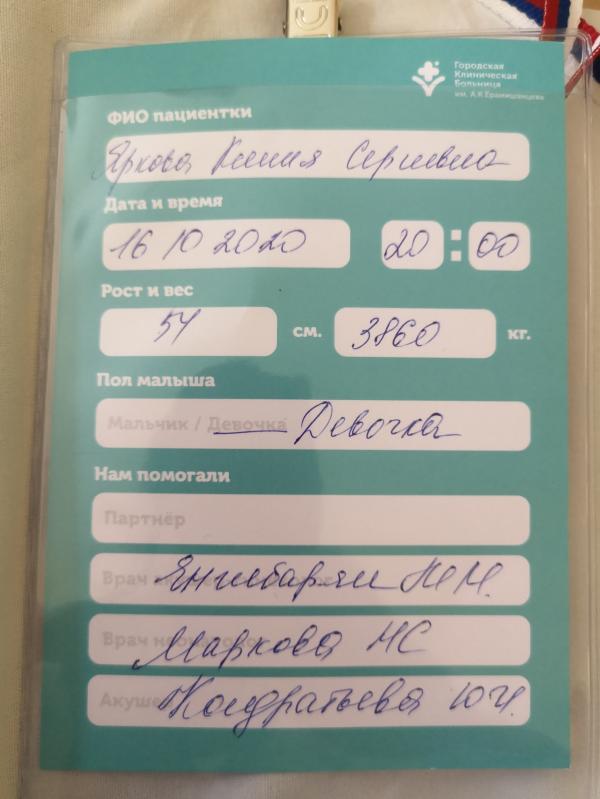 Городская
Клиническая
Больница
им. А.К.Ерамишанцева
ФИО пациентки
Яркова Ксения Сергеевна
Дата и время
16 10 2020 20 : 00
Рост и вес
54 см. 3860 кг.
Пол малыша
Мальчик / Девочка Девочка
Нам помогали
Партнёр
Врач Енгибарян НМ.
Врач Маркова НС
Кондратьева ЮЧ.